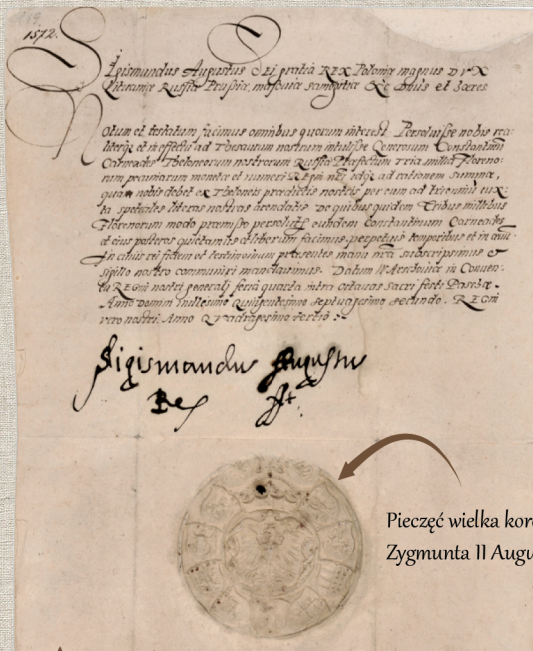 119.
1572.
Sigismundus Augustus Dei gratia REX Poloniæ magnus DVX
Lituaniæ Russiæ Prussiæ, masouiæ samogitiæ &c dnus et Hæres
Notum et testatum facimus omnibus quorum interest. Persoluisse nobis rea-
literq̃ et in effectu ad Thesaurum nostrum intulisse Generosum Constantinum
Carneades Theloneorum nostrorum Russiæ Præfectum Tria millia Floreno-
rum pecuniarum monetæ et numeri REgni nri idq̃ ad rationem summæ,
quam nobis debet ex Theloneis prædictis nostris per eum ad triennium iux-
ta speciales literas nostras arendatis De quibus quidem Tribus millibus
Florenorum modo præmisso persolutis eundem Constantinum Carneades
et eius posteros quietamus et liberum facimus perpetuis temporibus et in æuum
In cuius rei fidem et testimonium præsentes manu nra subscripsimus &
sigillo nostro communiri mandauimus. Datum Warschouiæ in Conuen-
tu REGni nostri generali feria quarta intra octauas sacri festi Paschæ.
Anno Domini millesimo Quingentesimo septuagesimo secundo. REGNI
vero nostri Anno Quadragesimo tertio
Sigismundus Augustus
Rex
Pieczęć wielka koro
Zygmunta II Augu